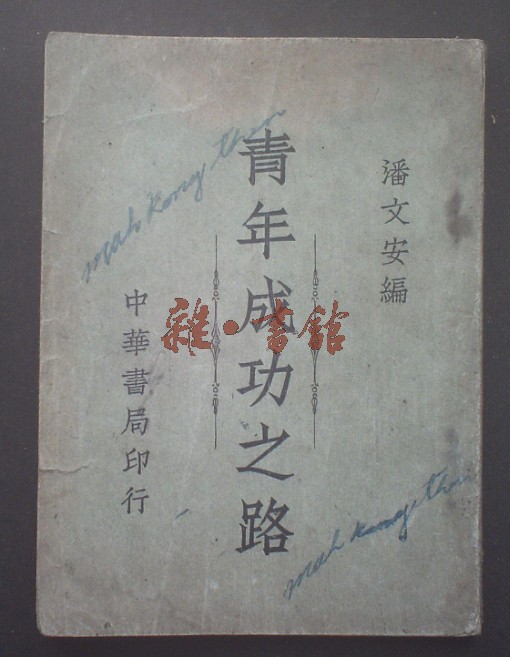 潘文安編
青年成功之路
中華書局印行
雜·書館
mah kong
mah kong